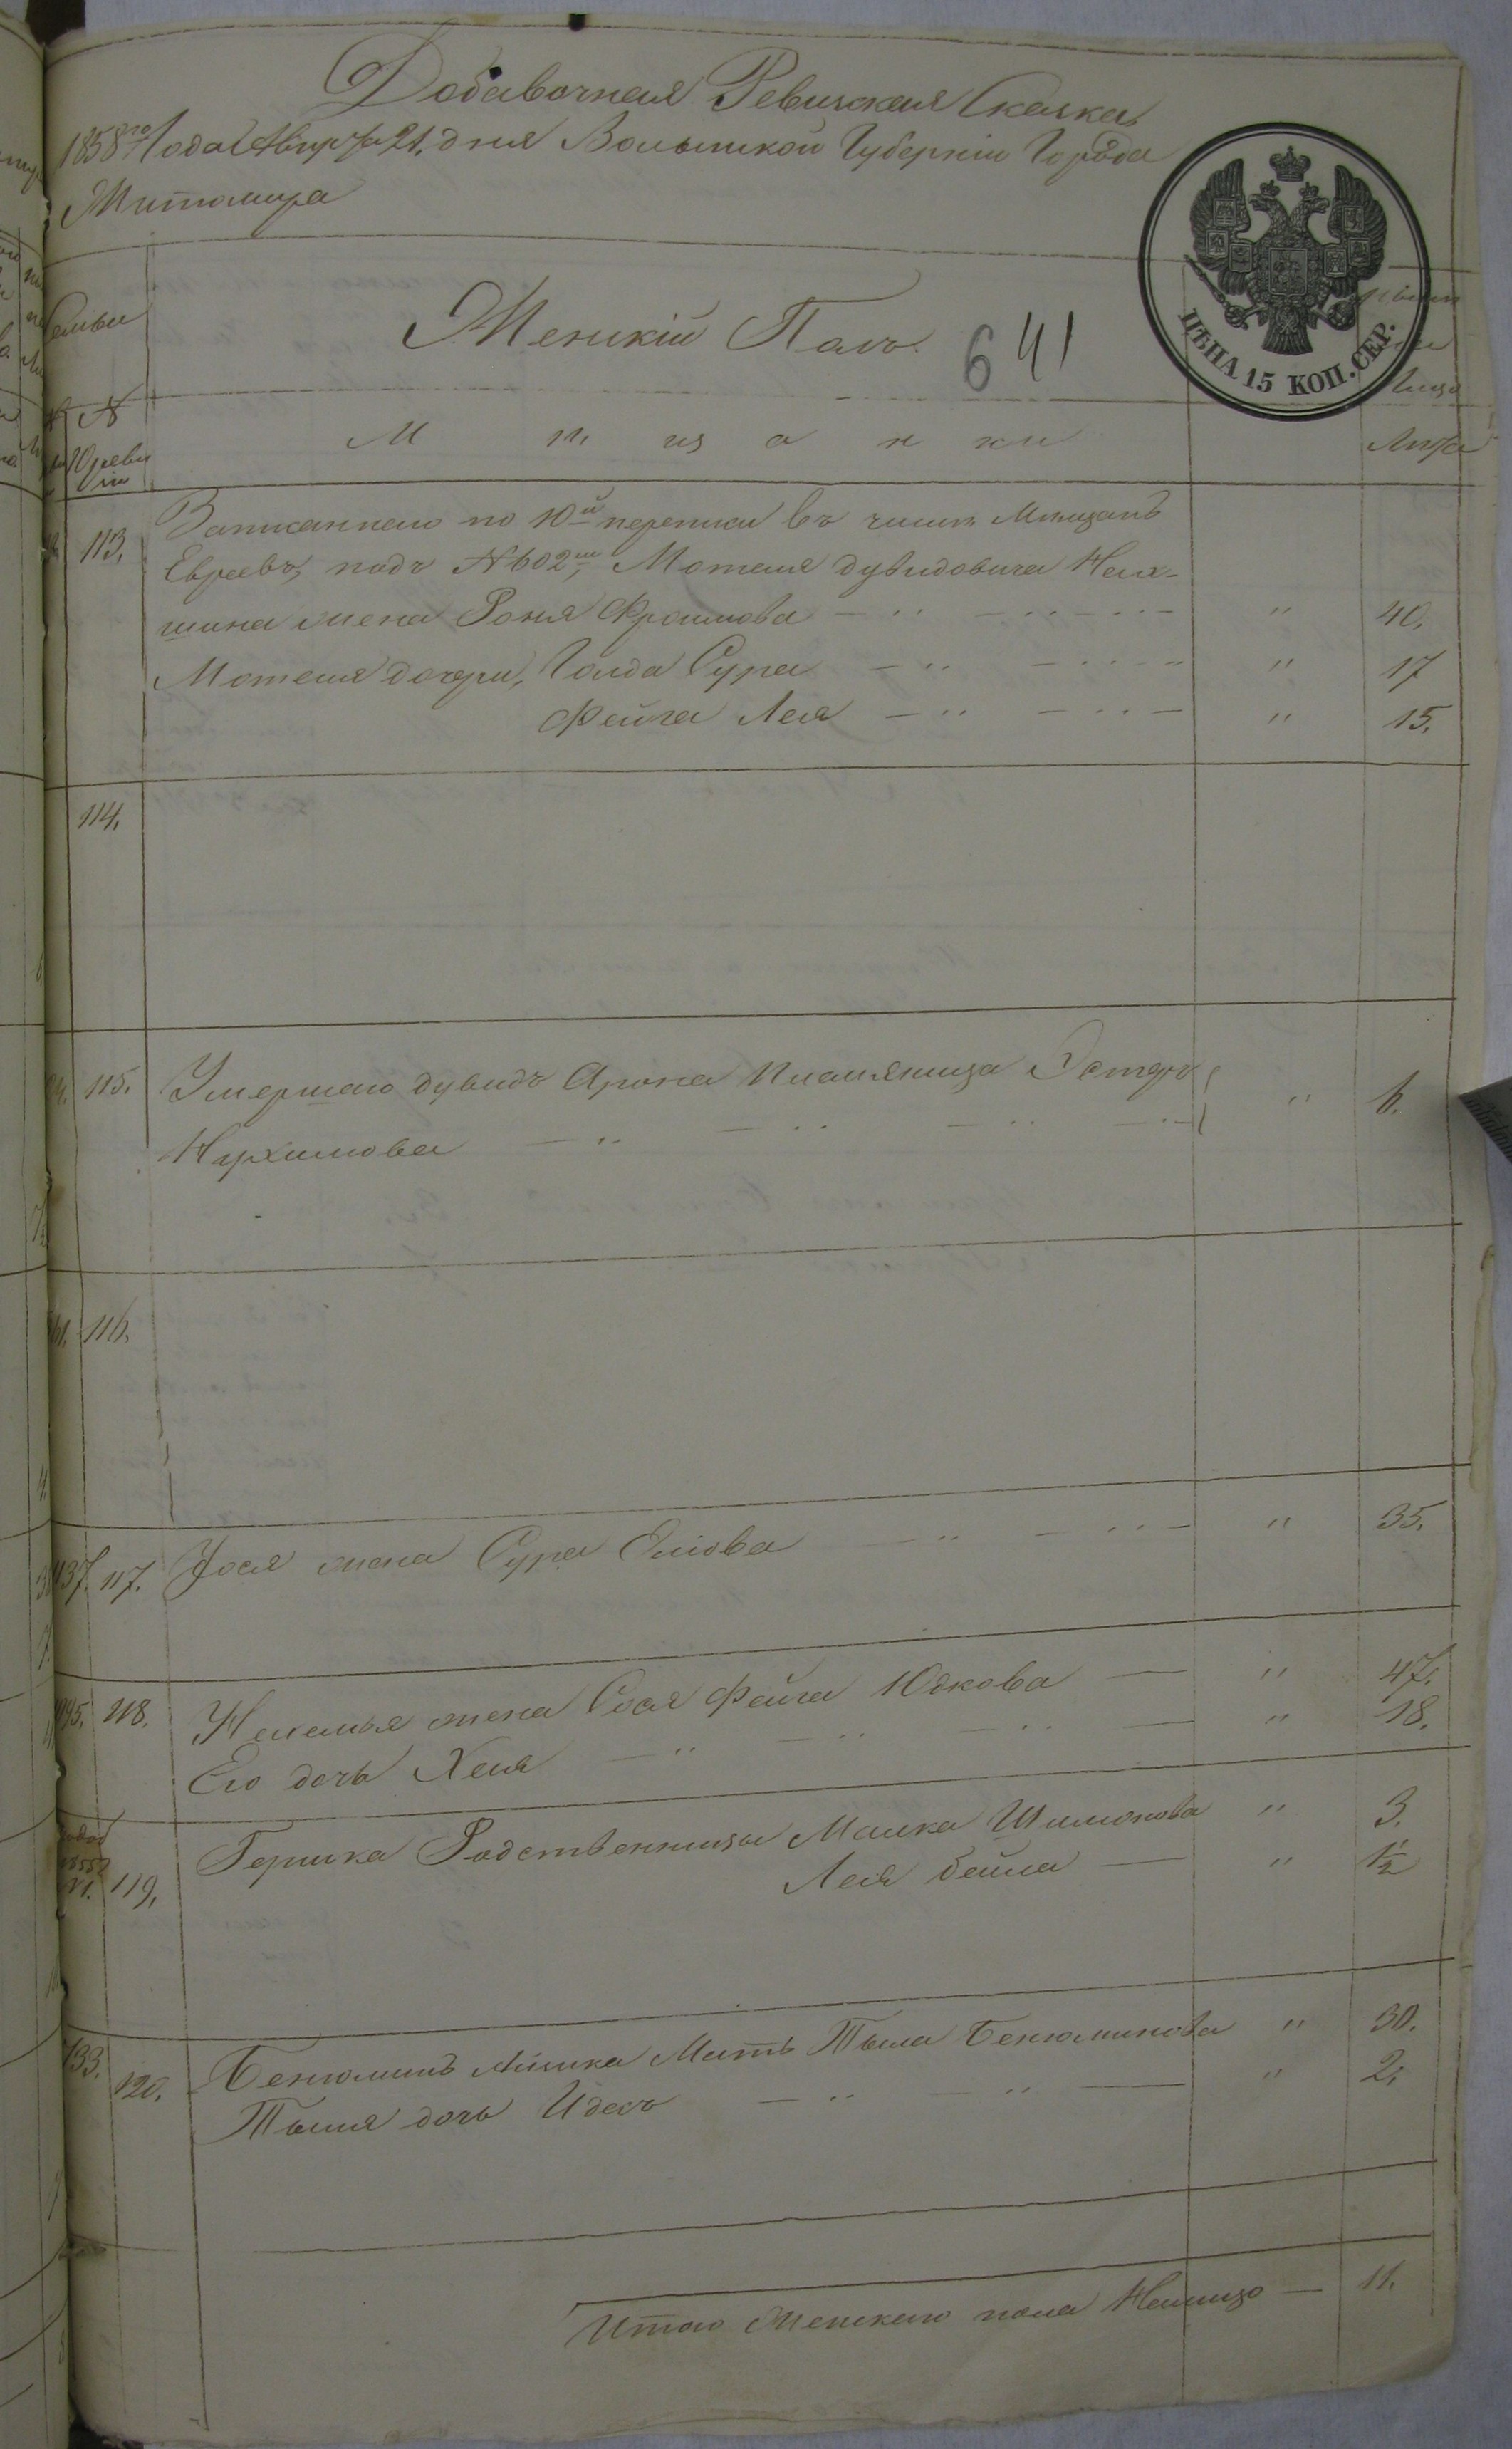 Добавочная Ревизская Сказка
1858го Года Апреля 21. дня Волынской Губерніи Города
Житомира
Семьи
Женскій Полъ.
641
ЦѢНА 15 КОП. СЕР.
№
Мѣщанки
Лѣта
10 реви
зіи
113.
Записаннаго по 10й переписи въ числѣ Мѣщанъ
Евреевъ, подъ №602м, Мотеля Дувидовича
жена Роня Фроимова — " — " — " " 40.
Мотеля дочери, Голда Сура — " — " — " 17
Фейга Лея — " — " — " 15.
114.
115. Умершаго Дувидъ Арона племяница Эстеръ " 6.
Нухимова — " — " — " —
116.
37. 117. Іося жена Сура Еліова — " — " — " 35.
95. 118. Нехемья жена Сося Фейга Юдкова — " 47.
Его дочь Хеня — " — " — " 18.
119. Гершка Родственницы Малка Шимонова " 3.
Лея Бейла — " 1/2
33. 120. Бенюминъ Мать Тыля Бенюминова " 30.
Тыля дочь Идесъ — " — " — " 2.
Итого Женскаго пола Налицо — 11.